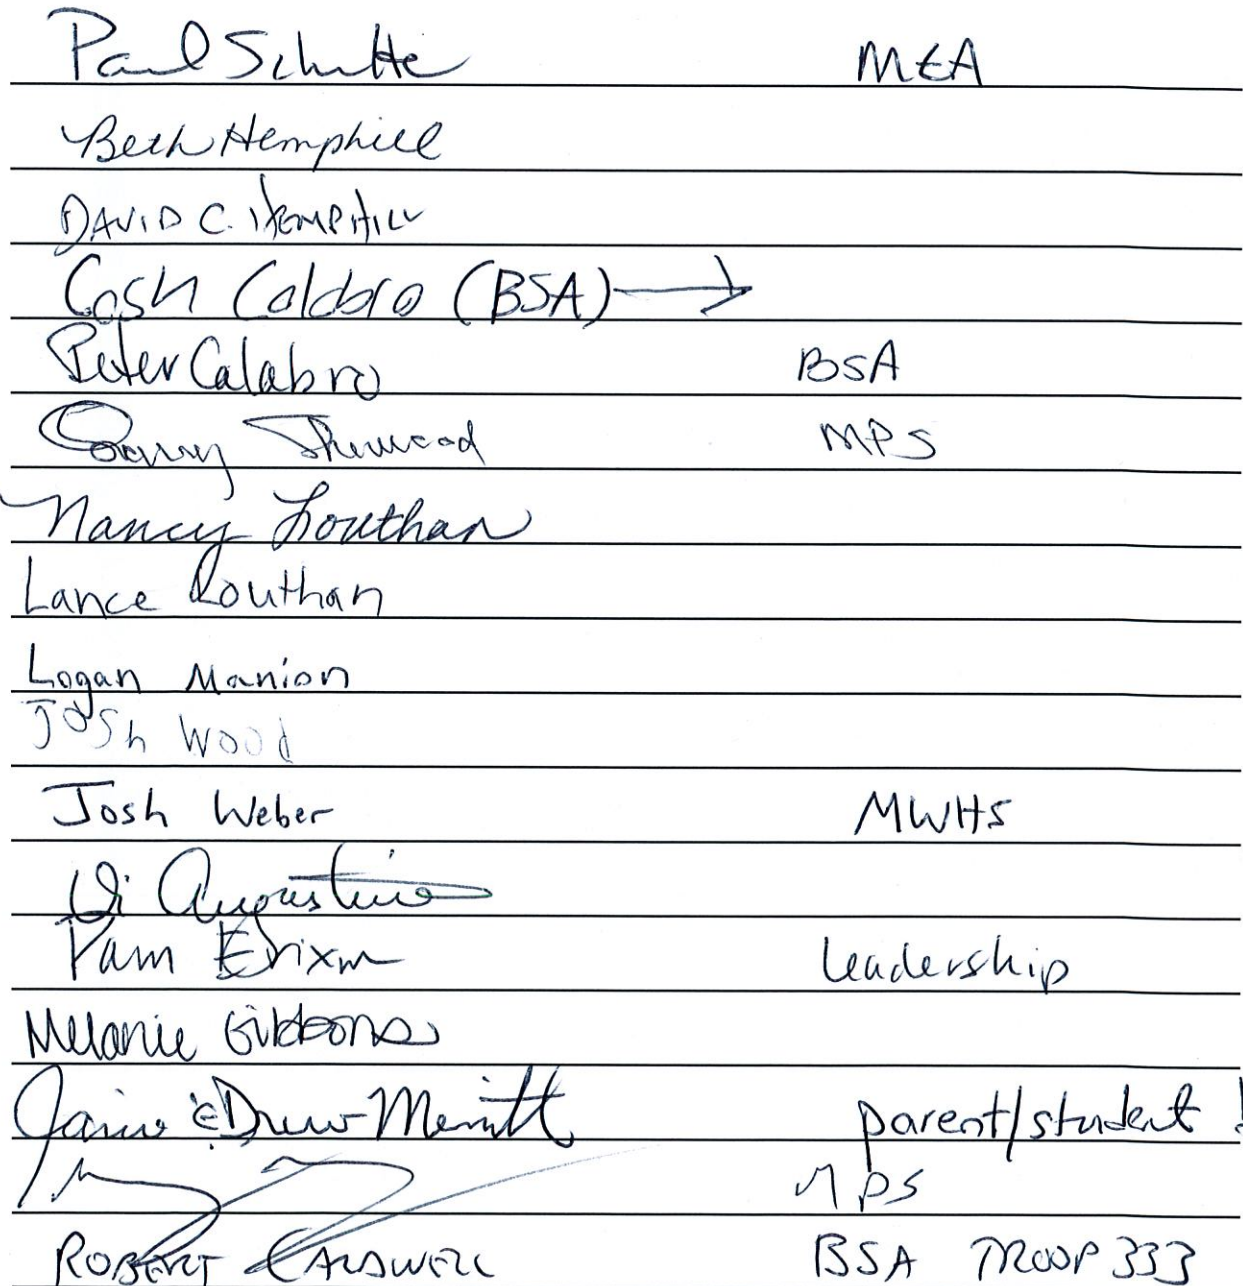 Paul Schutte MEA
Beth Hemphill
DAVID C. HEMPHILL
Cash Calabro (BSA) →
Peter Calabro BSA
Garry Sherwood MPS
Nancy Louthan
Lance Louthan
Logan Manion
Josh Wood
Josh Weber MWHS
Di Augustine
Pam Erixon Leadership
Melanie Gibbons
Jaime & Drew Merritt parent/student!
MPS
ROBERT CALDWELL BSA TROOP 333